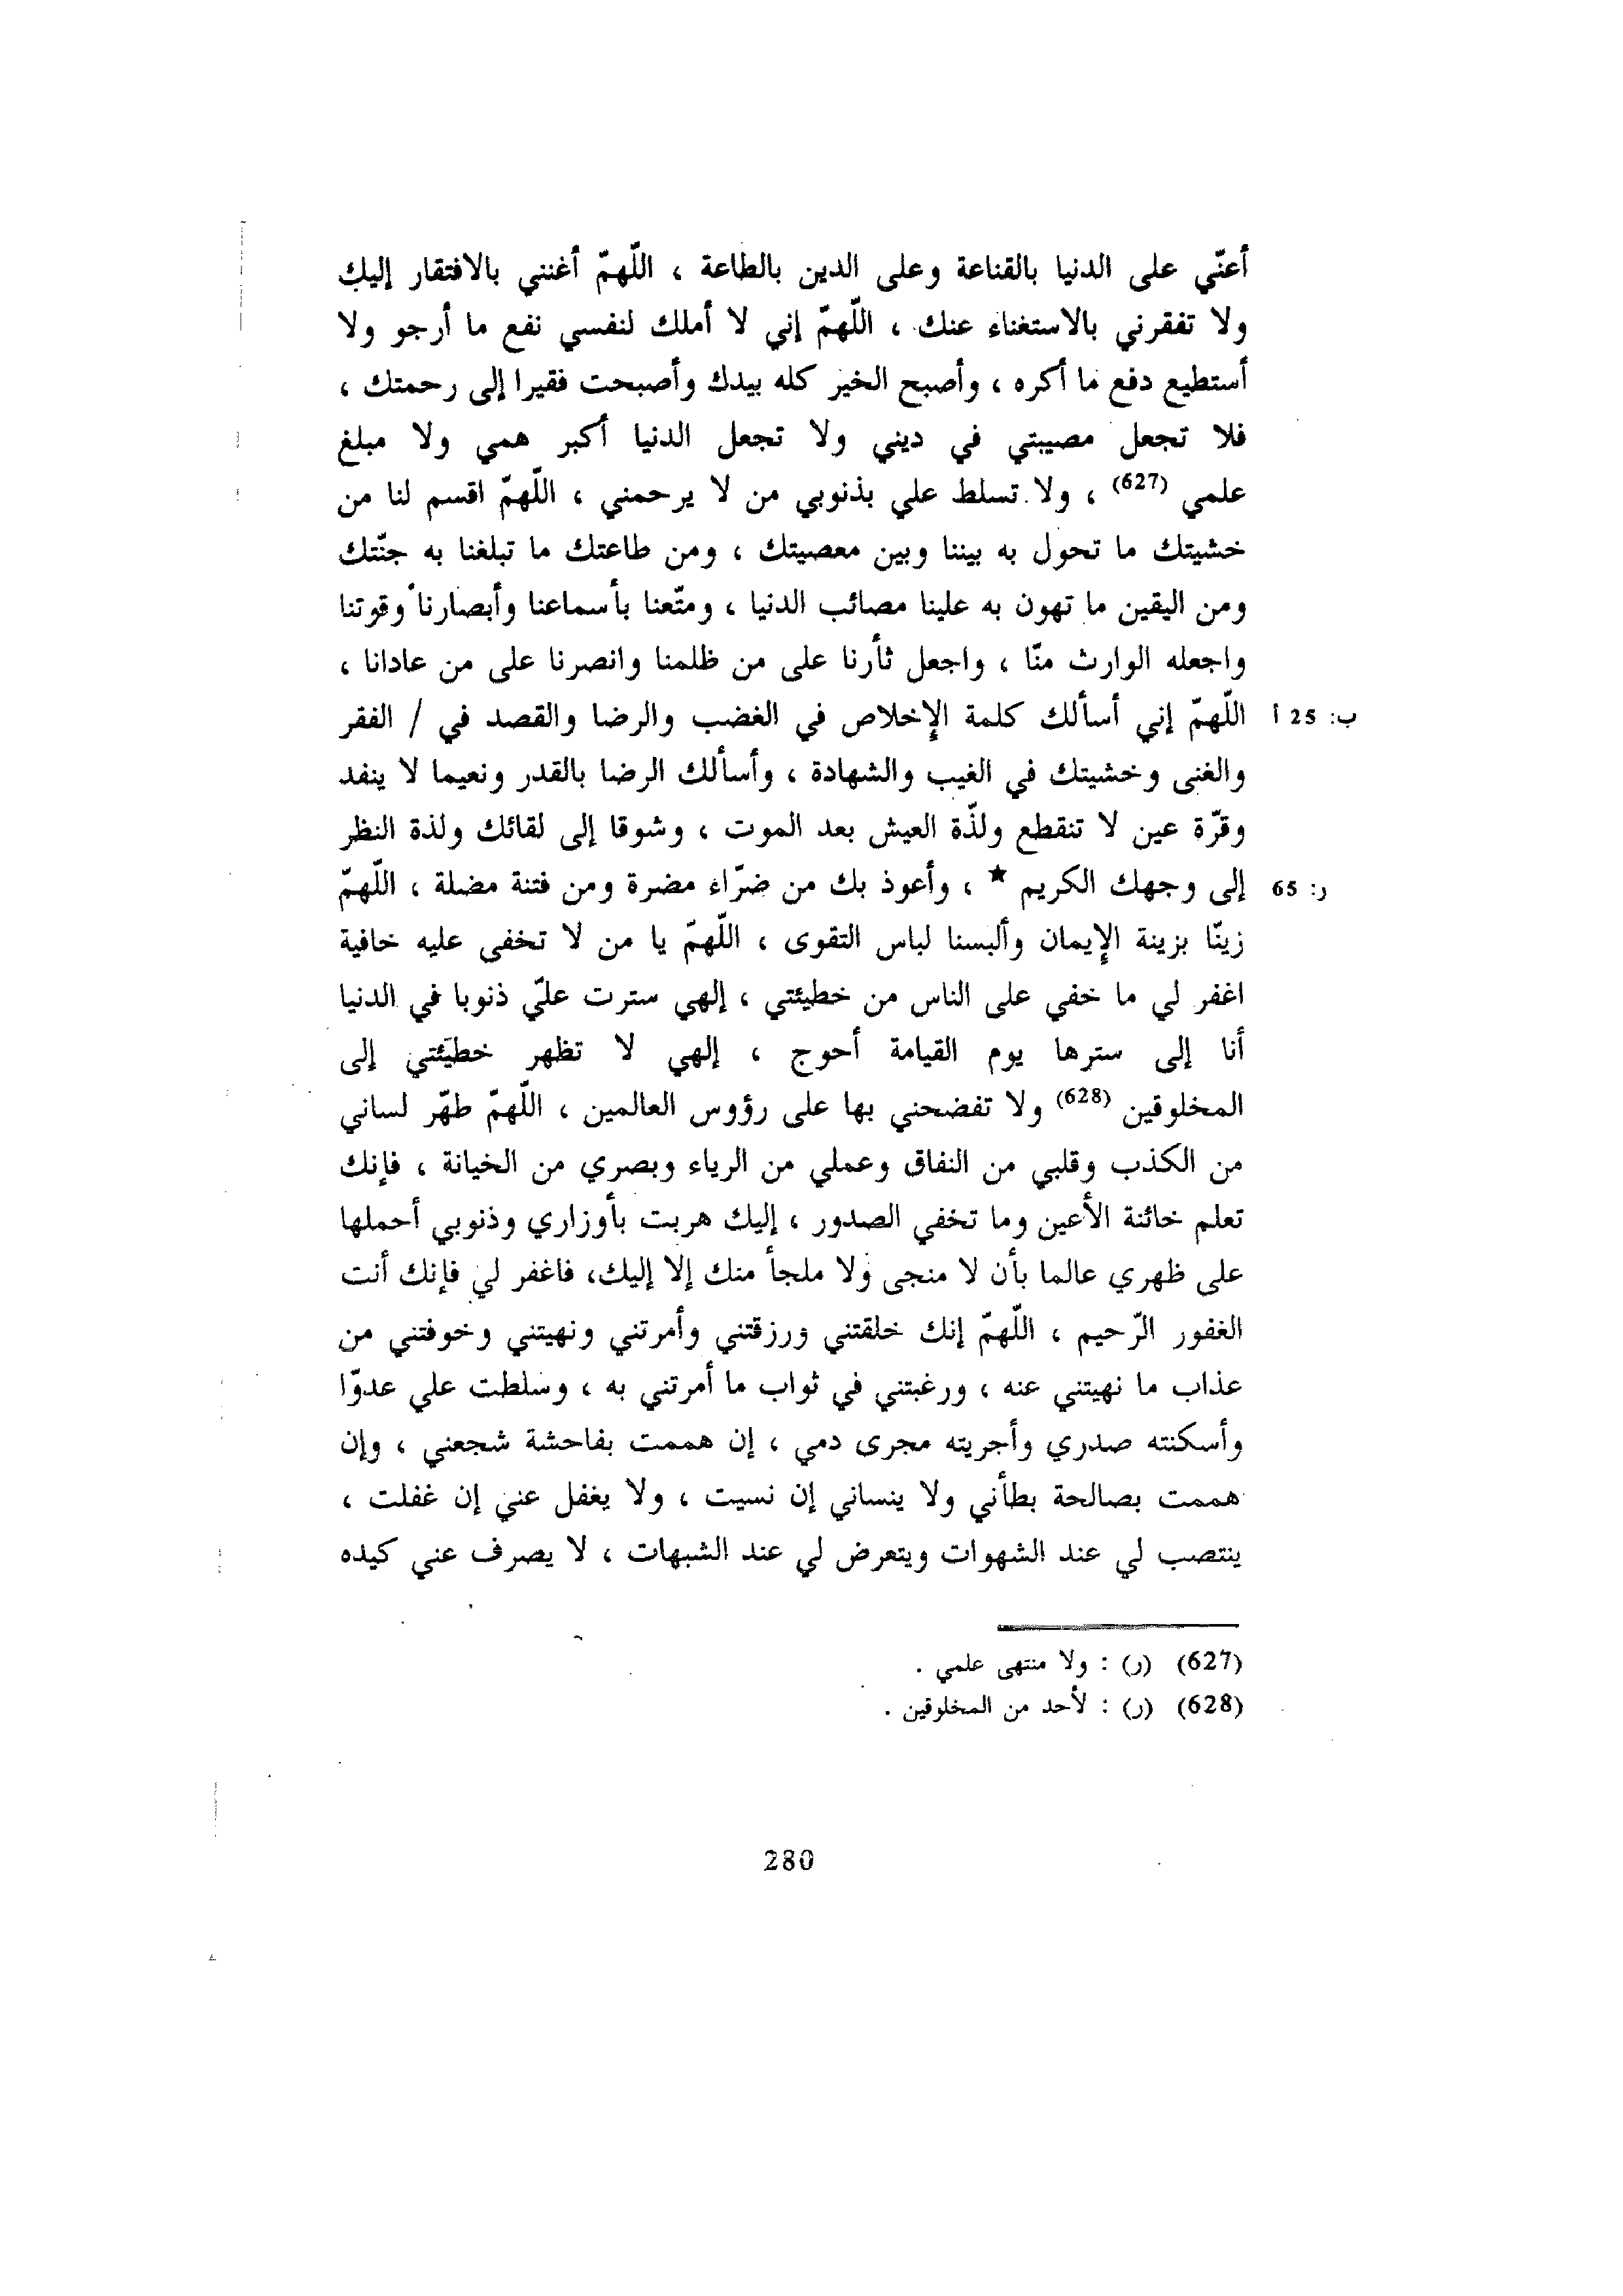 أعنّي على الدنيا بالقناعة وعلى الدين بالطاعة ، اللّهمّ أغنني بالافتقار إليك
ولا تفقرني بالاستغناء عنك ، اللّهمّ إني لا أملك لنفسي نفع ما أرجو ولا
أستطيع دفع ما أكره ، وأصبح الخير كله بيدك وأصبحت فقيرا إلى رحمتك ،
فلا تجعل مصيبتي في ديني ولا تجعل الدنيا أكبر همي ولا مبلغ
علمي (627) ، ولا تسلط علي بذنوبي من لا يرحمني ، اللّهمّ اقسم لنا من
خشيتك ما تحول به بيننا وبين معصيتك ، ومن طاعتك ما تبلغنا به جنّتك
ومن اليقين ما تهون به علينا مصائب الدنيا ، ومتّعنا بأسماعنا وأبصارنا وقوتنا
واجعله الوارث منّا ، واجعل ثأرنا على من ظلمنا وانصرنا على من عادانا ،
ب: 25 أ اللّهمّ إني أسألك كلمة الإخلاص في الغضب والرضا والقصد في / الفقر
والغنى وخشيتك في الغيب والشهادة ، وأسألك الرضا بالقدر ونعيما لا ينفد
وقرّة عين لا تنقطع ولذّة العيش بعد الموت ، وشوقا إلى لقائك ولذة النظر
ر: 65 إلى وجهك الكريم * ، وأعوذ بك من ضرّاء مضرة ومن فتنة مضلة ، اللّهمّ
زينّا بزينة الإيمان وألبسنا لباس التقوى ، اللّهمّ يا من لا تخفى عليه خافية
اغفر لي ما خفي على الناس من خطيئتي ، إلهي سترت عليّ ذنوبا في الدنيا
أنا إلى سترها يوم القيامة أحوج ، إلهي لا تظهر خطيئتي إلى
المخلوقين (628) ولا تفضحني بها على رؤوس العالمين ، اللّهمّ طهّر لساني
من الكذب وقلبي من النفاق وعملي من الرياء وبصري من الخيانة ، فإنك
تعلم خائنة الأعين وما تخفي الصدور ، إليك هربت بأوزاري وذنوبي أحملها
على ظهري عالما بأن لا منجى ولا ملجأ منك إلا إليك، فاغفر لي فإنك أنت
الغفور الرّحيم ، اللّهمّ إنك خلقتني ورزقتني وأمرتني ونهيتني وخوفتني من
عذاب ما نهيتني عنه ، ورغبتني في ثواب ما أمرتني به ، وسلطت علي عدوّا
وأسكنته صدري وأجريته مجرى دمي ، إن هممت بفاحشة شجعني ، وإن
هممت بصالحة بطأني ولا ينساني إن نسيت ، ولا يغفل عني إن غفلت ،
ينتصب لي عند الشهوات ويتعرض لي عند الشبهات ، لا يصرف عني كيده
(627) (ر) : ولا منتهى علمي .
(628) (ر) : لأحد من المخلوقين .
280